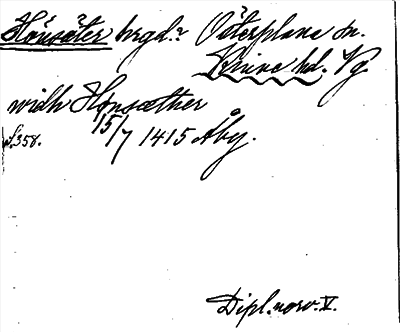 Hönsäter hrgd. Österplana sn.
Kinne hd. Vg.
widh Hönsæther
15/7 1415 Åby.
s. 358.
Dipl. norv. V.